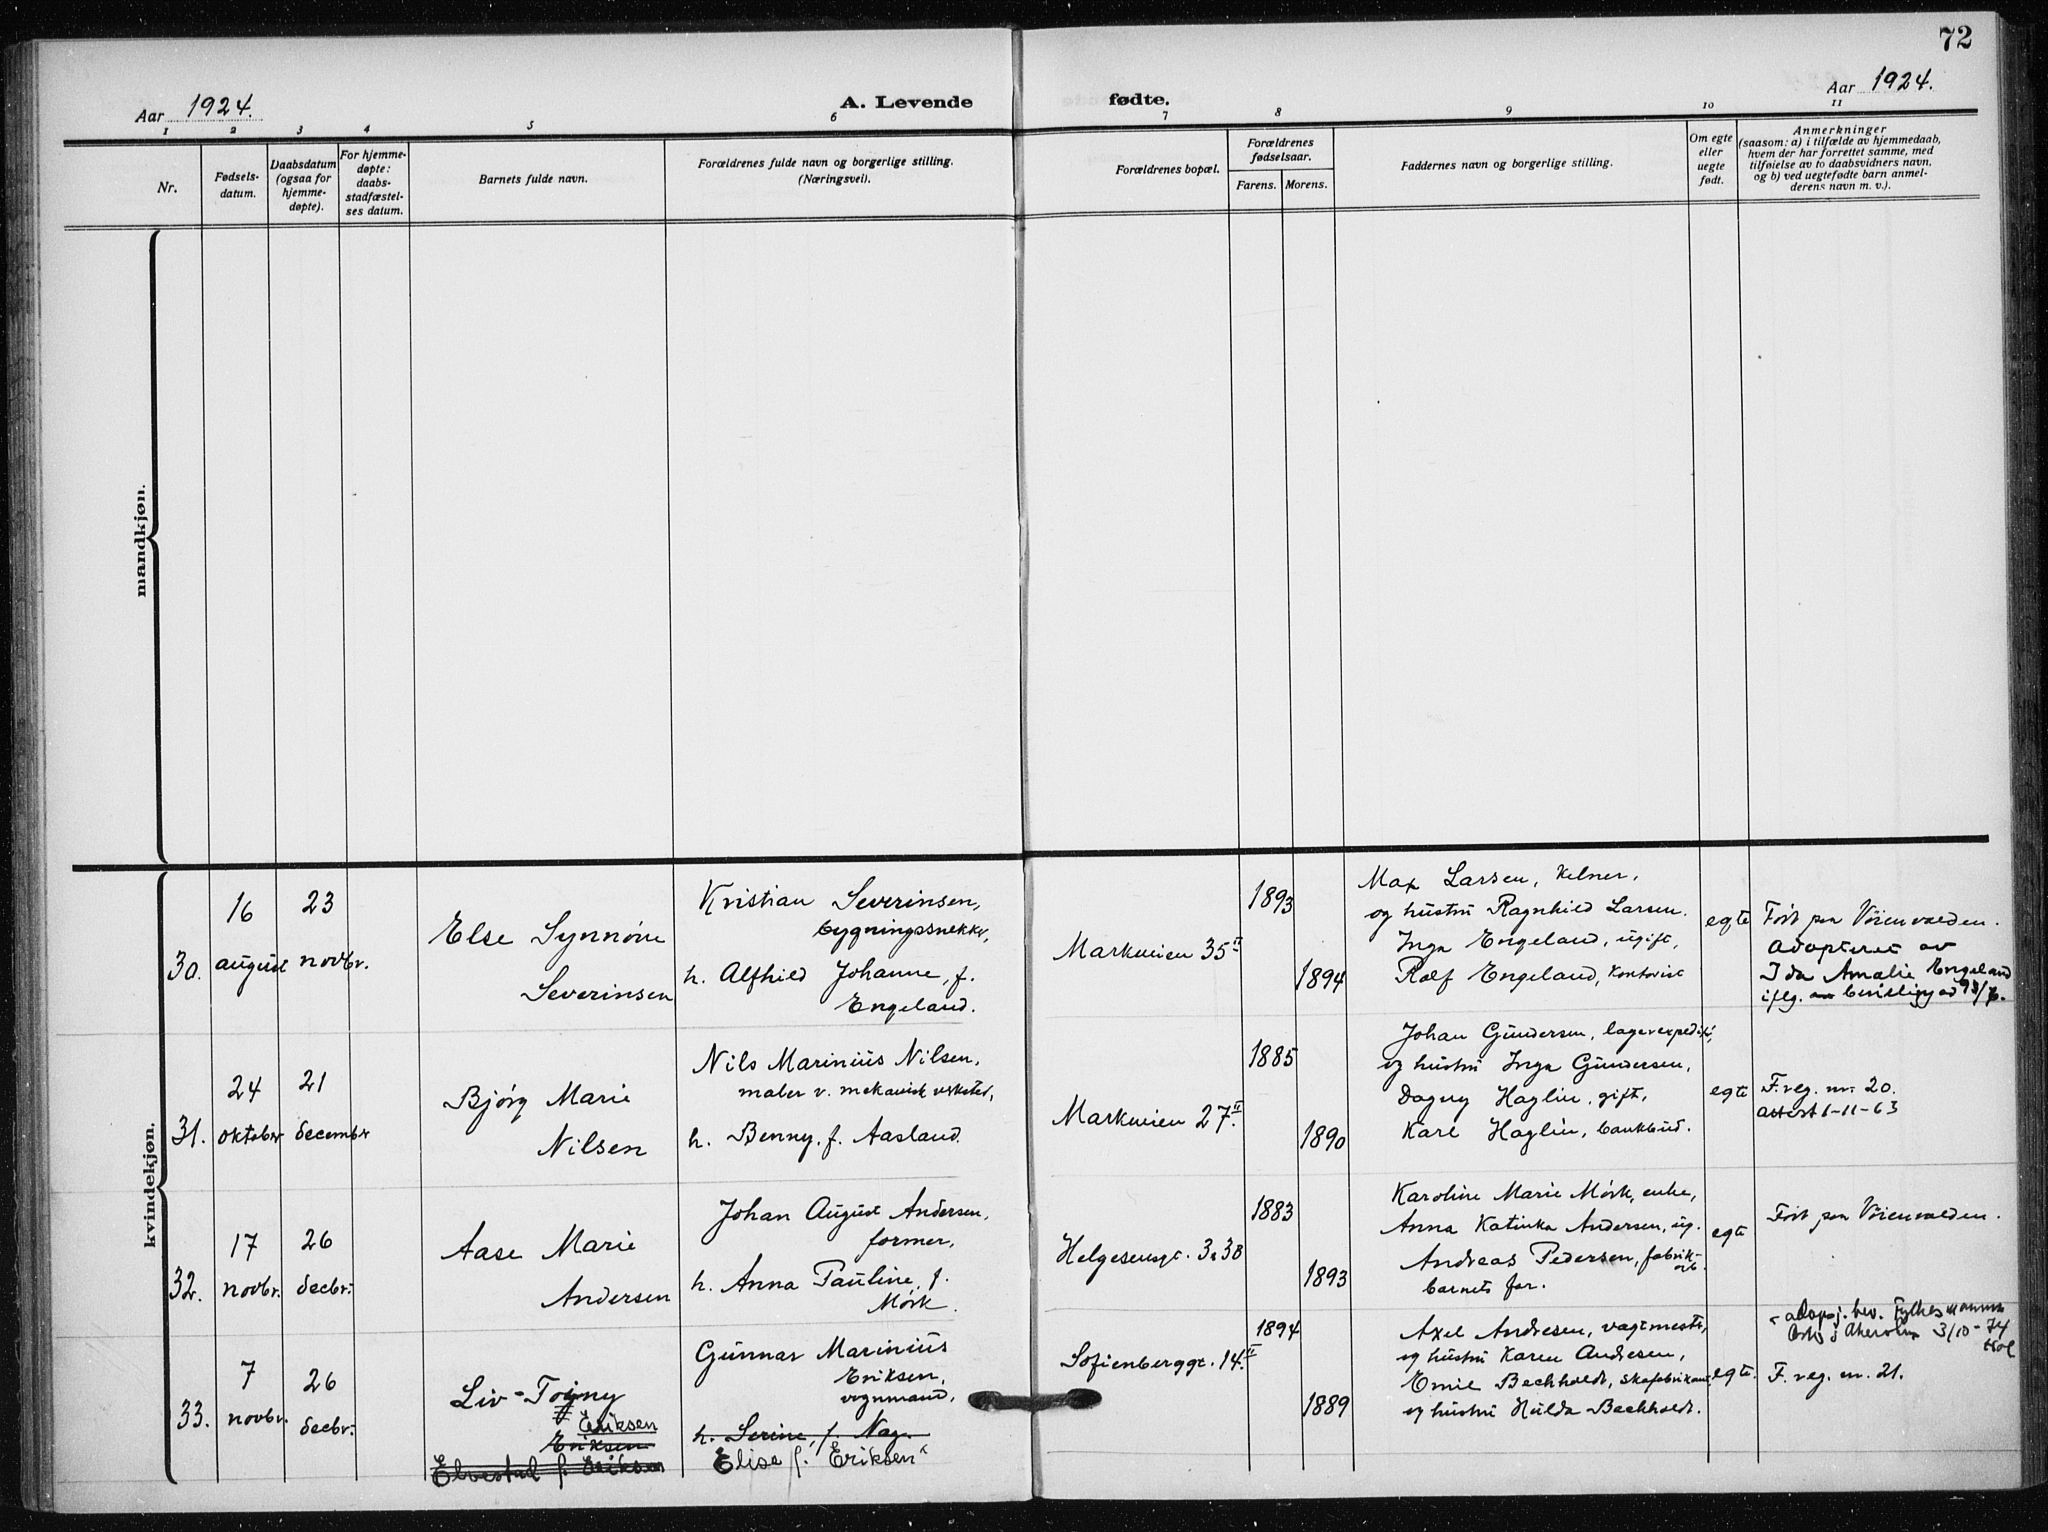 72
Aar 1924.
A. Levende
fødte.
Aar 1924.
1 2 3 4 5 6 7 8 9 10 11
Nr.
Fødsels-
datum.
Daabsdatum
(ogsaa for
hjemme-
døpte).
For hjemme-
døpte:
daabs-
stadfæstel-
ses datum.
Barnets fulde navn.
Forældrenes fulde navn og borgerlige stilling.
(Næringsvei).
Forældrenes bopæl.
Forældrenes
fødselsaar.
Farens. Morens.
Faddernes navn og borgerlige stilling.
Om egte
eller
uegte
født.
Anmerkninger
(saasom: a) i tilfælde av hjemmedaab,
hvem der har forrettet samme, med
tilføielse av to daabsvidners navn,
og b) ved uegtefødte barn anmel-
derens navn m. v.).
mandkjøn.
kvindekjøn.
30.
16
august
23
novbr.
Else Synnøve
Severinsen
Kristian Severinsen,
bygningssnekker,
h. Alfhild Johanne, f.
Engeland.
Markveien 35 II
1893
1894
Max Larsen, kelner,
og hustru Ragnhild Larsen.
Inga Engeland, ugift,
Rolf Engeland, kontorist
egte
Født paa Vøienvolden.
Adopteret av
Ida Amalie Engeland
iflg.
31.
24
oktober
21
decembr
Bjørg Marie
Nilsen
Nils Marinius Nilsen,
maler v. mekanisk verksted,
h. Benny, f. Aasland.
Markveien 27 II.
1885
1890
Johan Gundersen, lagerexpedit.,
og hustru Inga Gundersen,
Dagny Haglin, gift,
Karl Haglin, bankbud.
egte
F. reg. nr. 20.
attest 6-11-63
32.
17
novbr.
26
decbr.
Aase Marie
Andersen
Johan August Andersen,
former,
h. Anna Pauline, f.
Mørk.
Helgesensgt.
1883
1893
Karoline Marie Mørk, enke,
Anna Katinka Andersen, ug.
Andreas Pedersen, fabrik-
arb.
barnets far.
egte
Født paa Vøienvolden.
33.
7
novbr.
26
decbr.
Liv-Torny
Eriksen
Eriksen
Elvestad f. Eriksen
Gunnar Marinius
Eriksen,
vognmand,
h. Serine, f. Nag
Elise f. Eriksen
Sofienberggt. 14 II
1894
1889
Axel Andresen, vagtmester,
og hustru Karen Andresen,
Emil Bechholdt, skofabrikant,
og hustru Hulda Bechholdt.
egte.
bev. Fylkesmannen
3/10-74
F. reg. nr. 21.